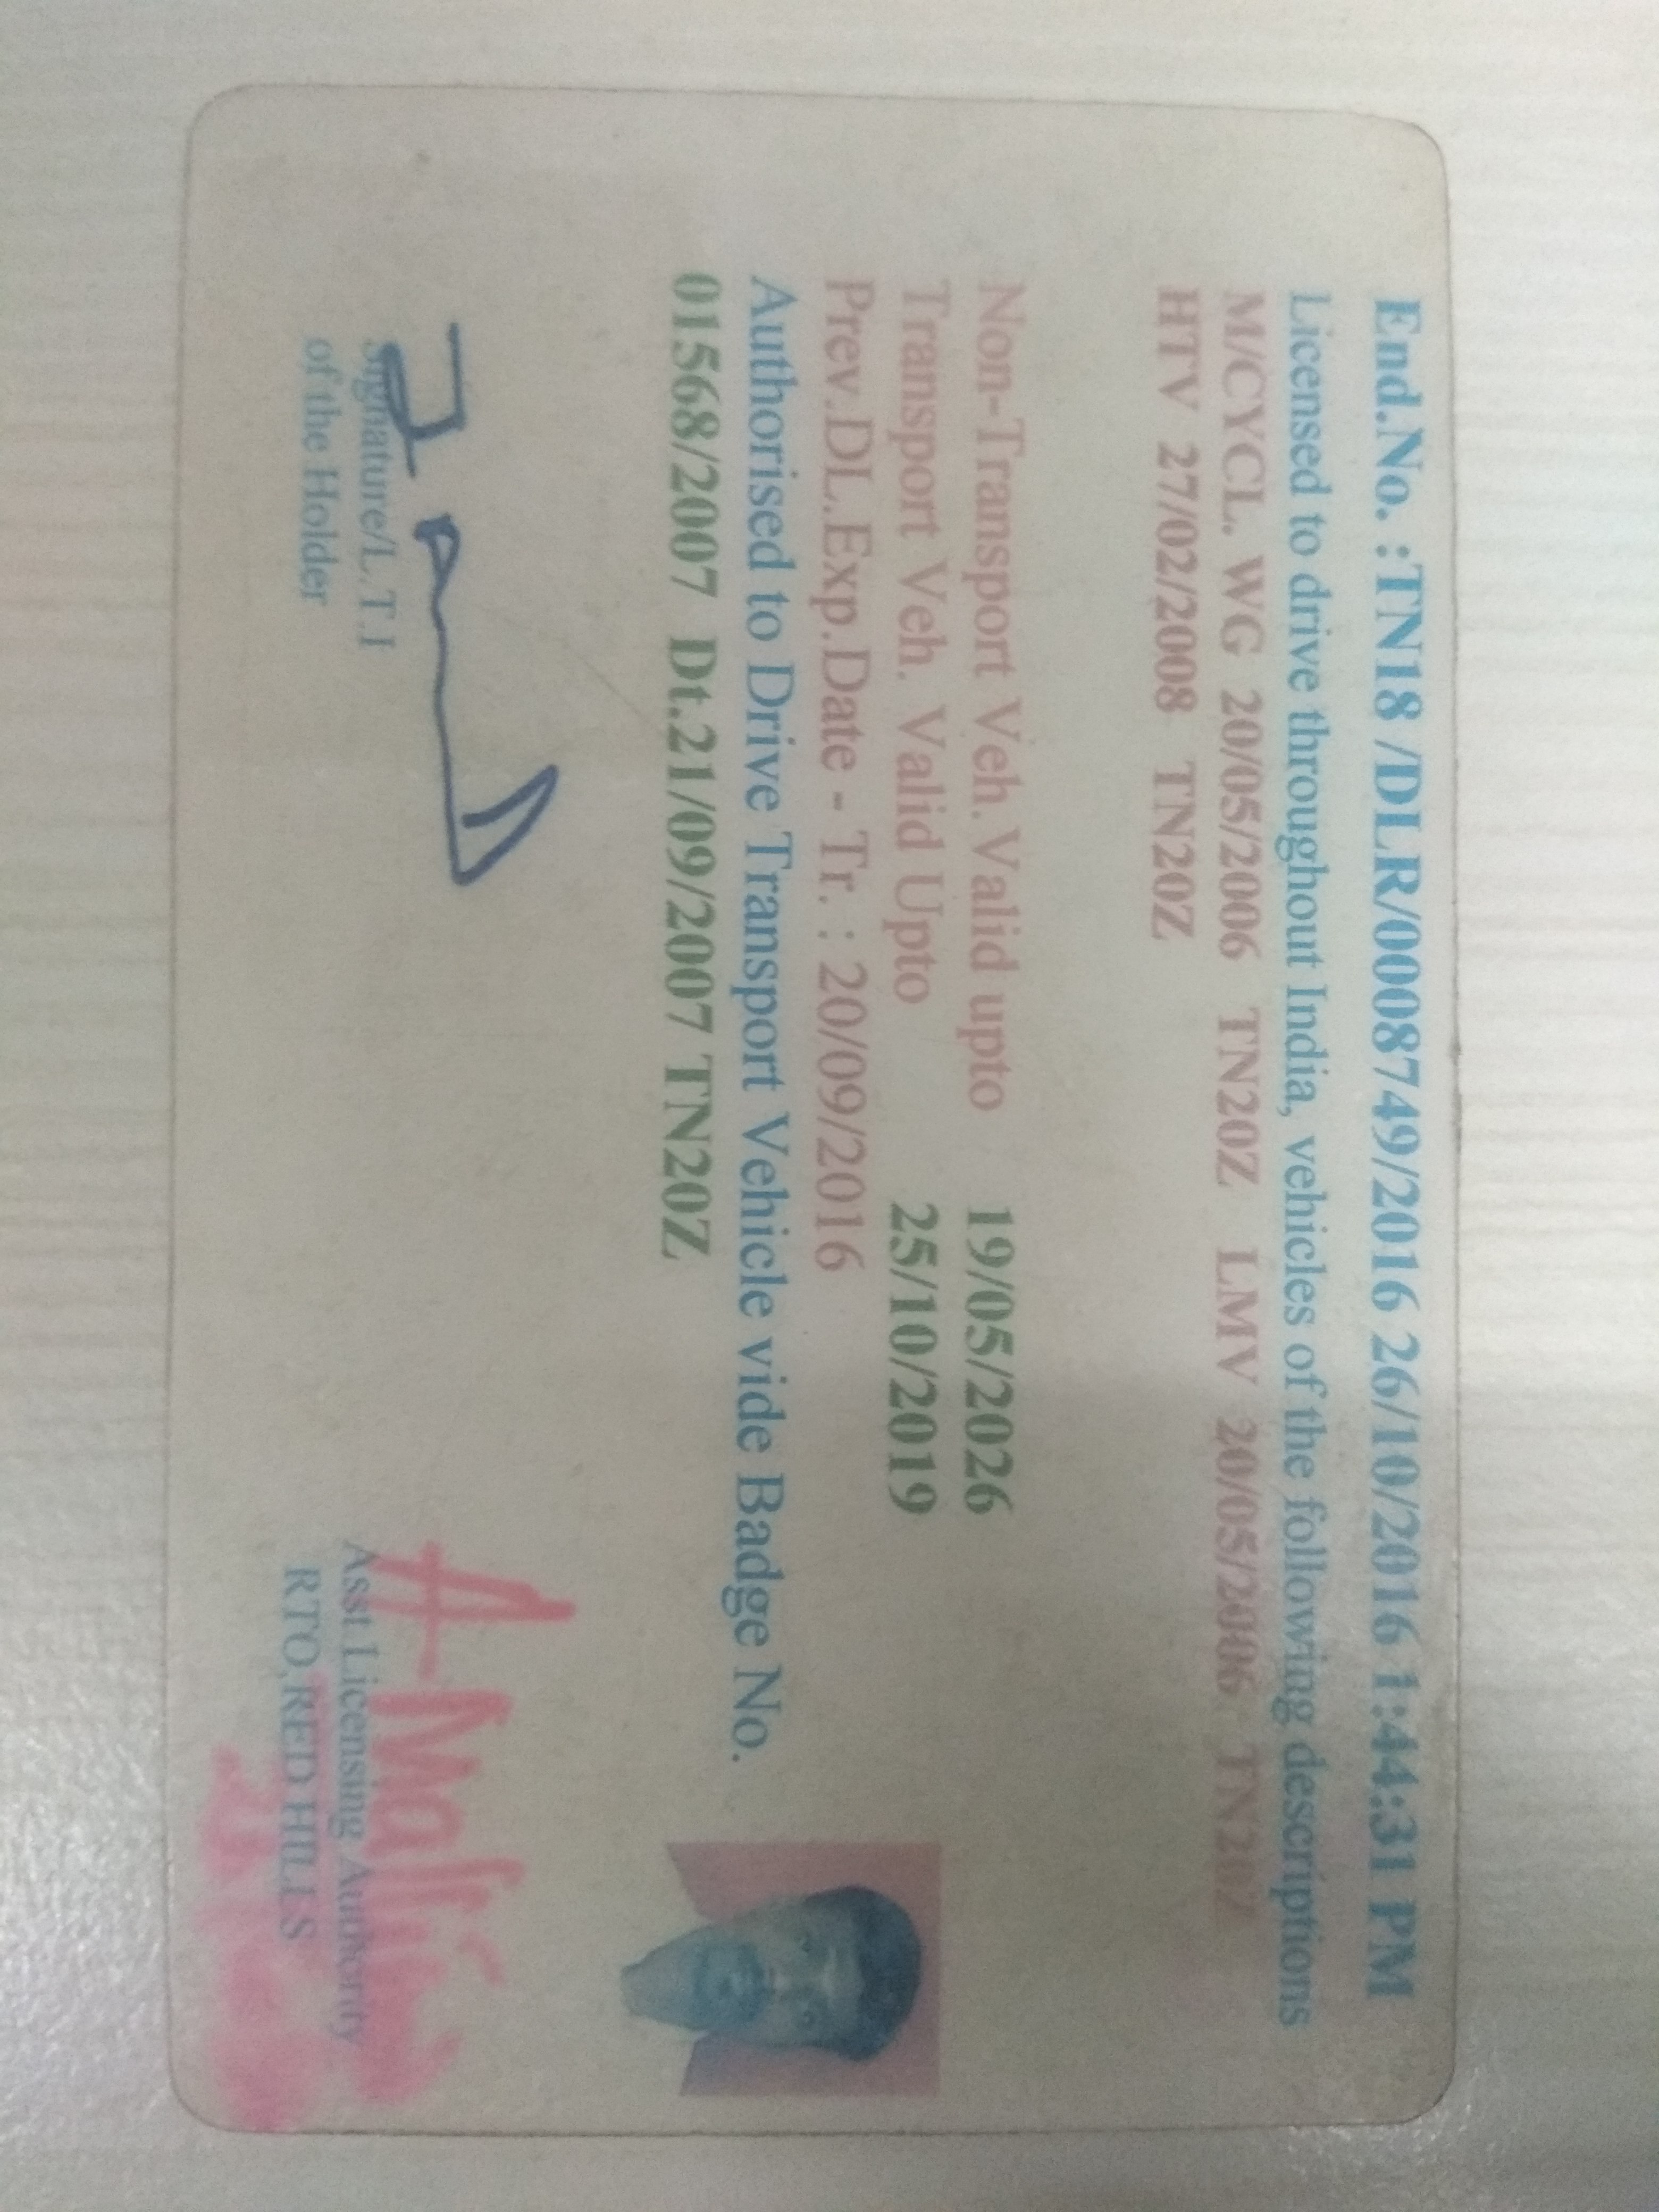 End.No. :TN18 /DLR/0008749/2016 26/10/2016 1:44:31 PM
Licensed to drive throughout India, vehicles of the following descriptions
M/CYCL. WG 20/05/2006 TN20Z LMV 20/05/2006 TN20Z
HTV 27/02/2008 TN20Z
Non-Transport Veh.Valid upto 19/05/2026
Transport Veh. Valid Upto 25/10/2019
Prev.DL.Exp.Date - Tr. : 20/09/2016
Authorised to Drive Transport Vehicle vide Badge No.
01568/2007 Dt.21/09/2007 TN20Z
Signature/L.T.I
of the Holder
Asst Licensing Authority
RTO,RED HILLS